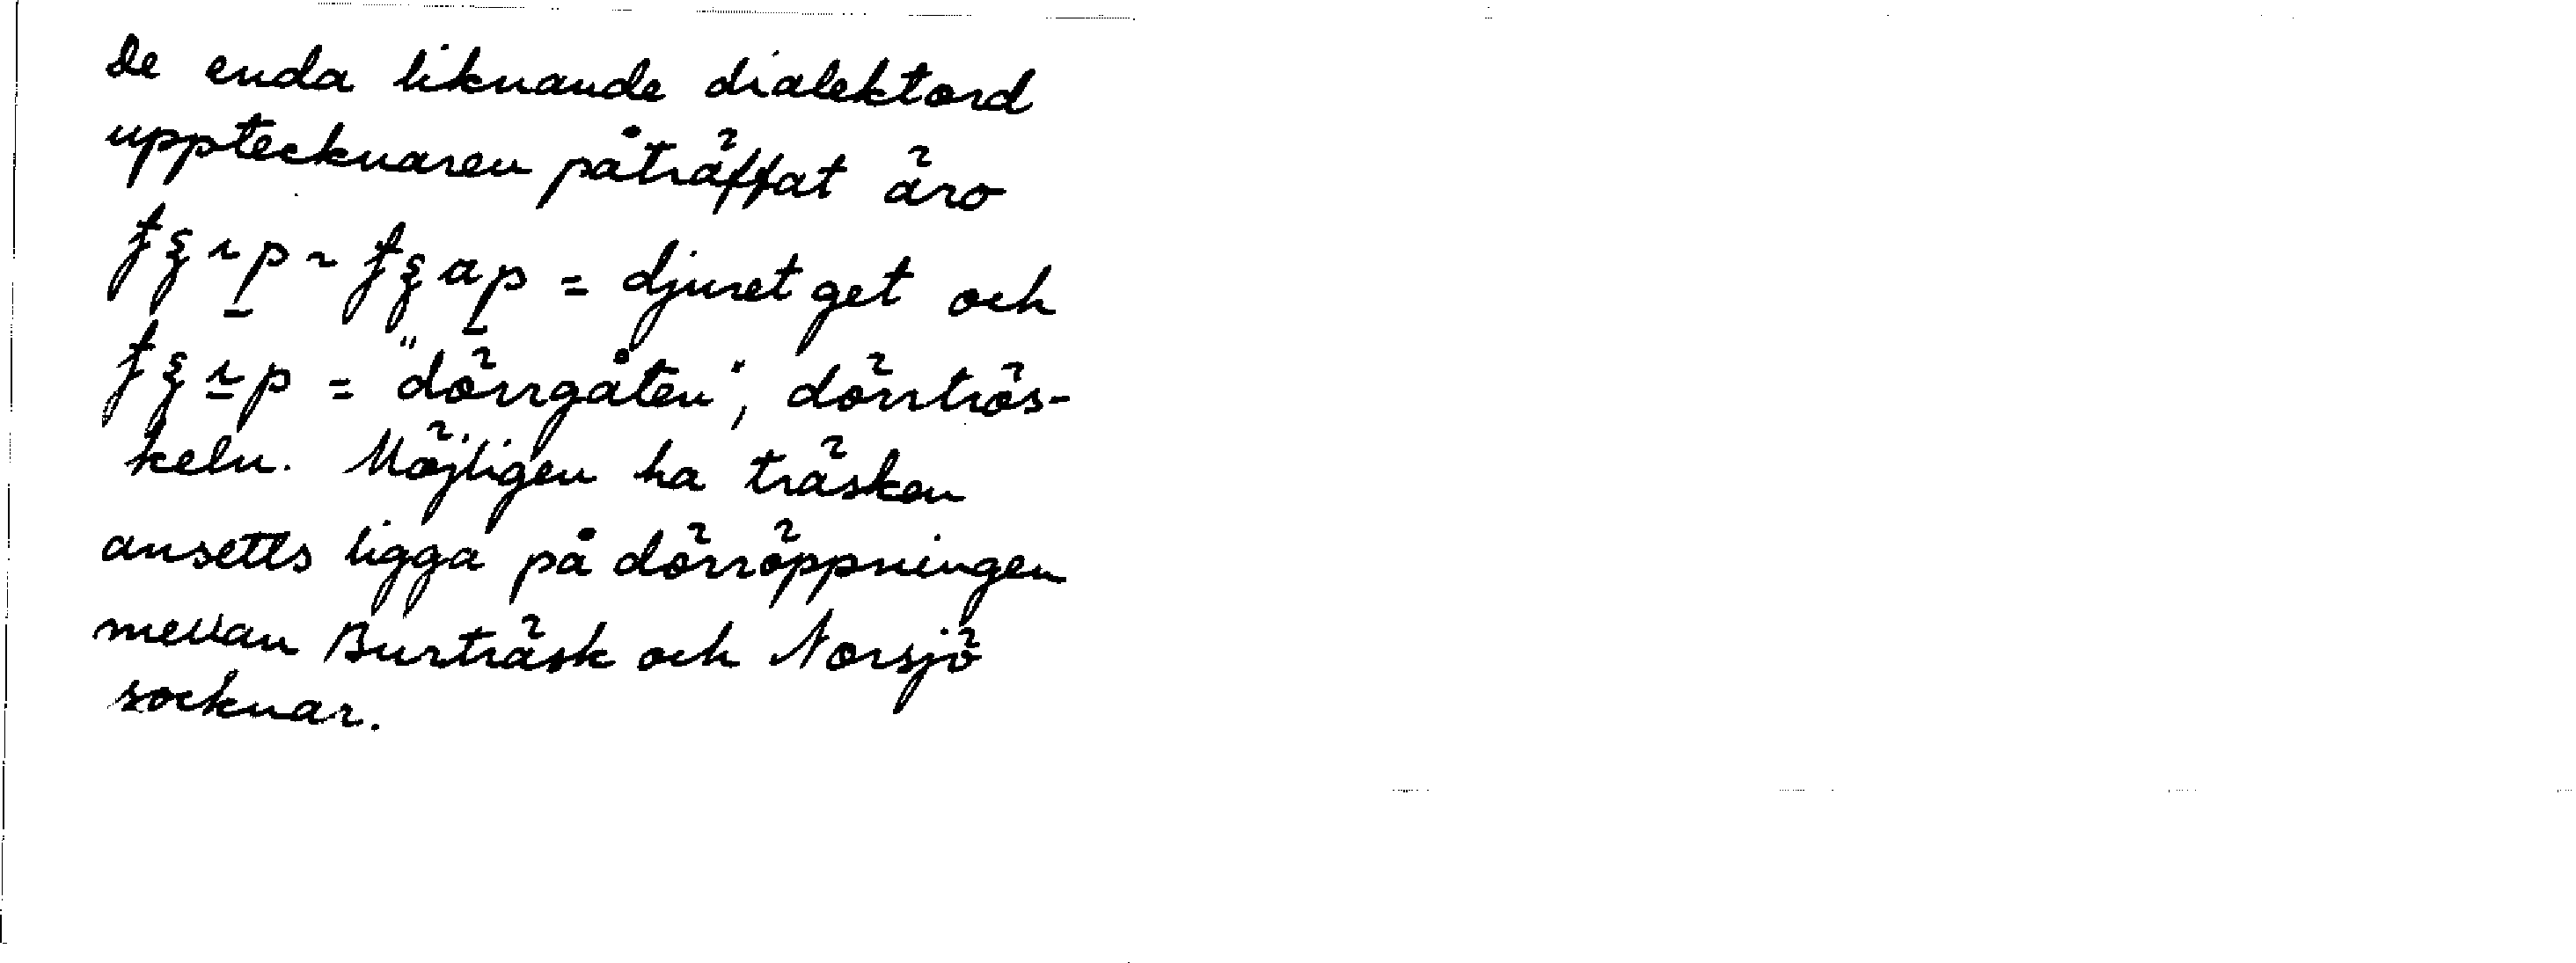 De enda liknande dialektord
upptecknaren påträffat äro
= djuret get och
= "dörrgåten", dörrtrös-
keln. Möjligen ha träsken
ansetts ligga på dörröppningen
mellan Burträsk och Norsjö
socknar.